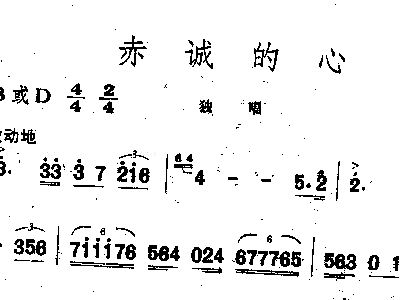 赤诚的心
B或D 4/4 2/4 独唱
动地
3. 33 3 7 216 | 64 4 - - 5.2 | 2.
356 | 7iii76 564 024 677765 | 563 0 1